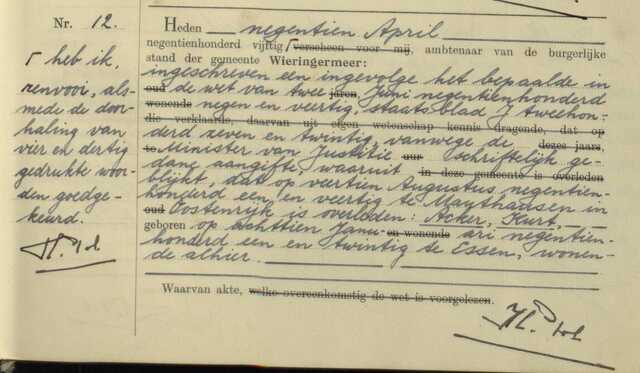 Nr. 12.
┌ heb ik,
renvooi, als-
mede de door-
haling van
vier en dertig
gedrukte woor-
den goedge-
keurd.
H. Pol
Heden negentien April
negentienhonderd vijftig ┌ verscheen voor mij, ambtenaar van de burgerlijke
stand der gemeente Wieringermeer:
ingeschreven een ingevolge het bepaalde in
oud de wet van twee jaren, Juni negentienhonderd
wonende negen en veertig, staatsblad J tweehon-
die verklaarde, daarvan uit eigen wetenschap kennis dragende, dat op
derd zeven en twintig vanwege de dezes jaars,
te Minister van Justitie uur schriftelijk ge-
dane aangifte, waaruit in deze gemeente is overleden
blijkt, dat op veertien Augustus negentien-
honderd een en veertig te Mauthausen in
oud Oostenrijk is overleden: Acker, Kurt,
geboren op achttien Janu- en wonende ari negentien-
honderd een en twintig te Essen, wonen-
de alhier.
Waarvan akte, welke overeenkomstig de wet is voorgelezen.
H. Pol